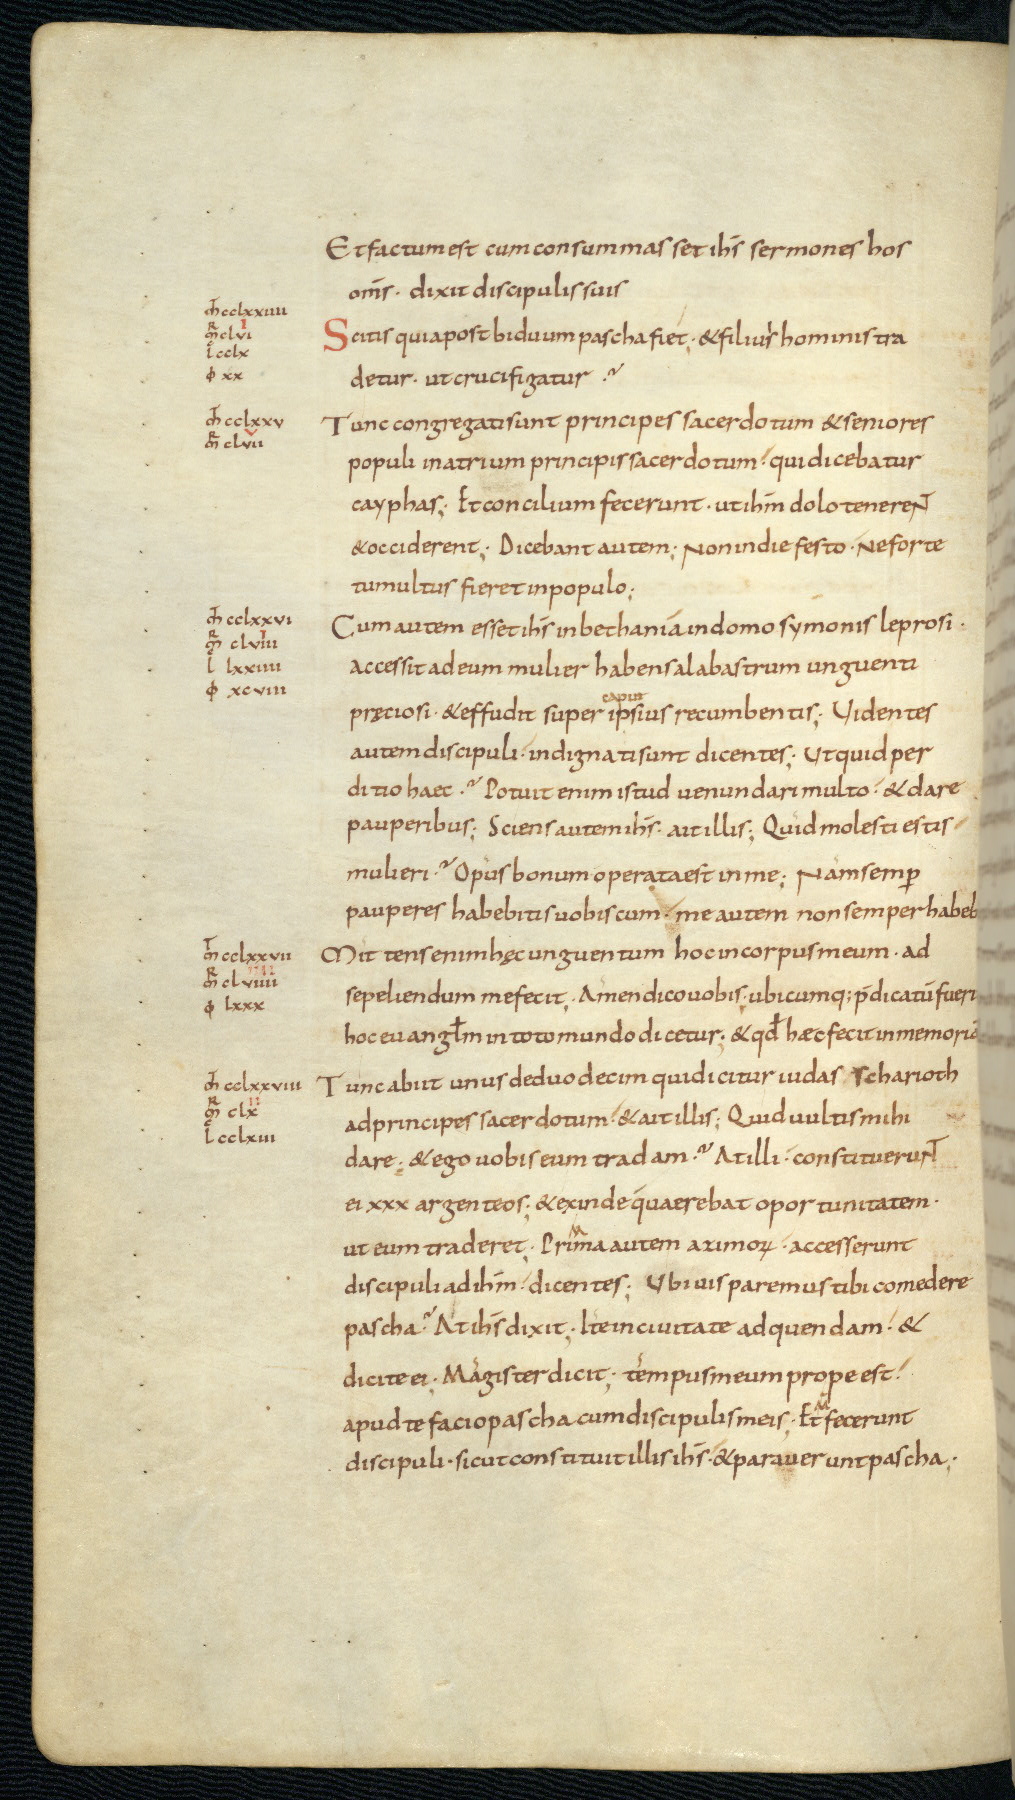 Et factum est cum consummasset ih̄s sermones hos
om̄s · dixit discipulis suis
m̄ cclxxiiii
m̄ clvi
l cclx
ϕ xx
Scitis quia post biduum pascha fiet · & filius hominis tra
detur · ut crucifigatur ·
m̄ cclxxv
m̄ clvii
Tunc congregati sunt principes sacerdotum & seniores
populi in atrium principis sacerdotum · qui dicebatur
cayphas; Et concilium fecerunt · ut ih̄m dolo tenerent
& occiderent; Dicebant autem; Non in die festo · Ne forte
tumultus fieret in populo;
m̄ cclxxvi
m̄ clviii
l lxxiiii
ϕ xcviii
Cum autem esset ih̄s in bethania in domo symonis leprosi ·
accessit ad eum mulier habens alabastrum unguenti
caput
pręciosi · & effudit super ipsius recumbentis; Uidentes
autem discipuli · indignati sunt dicentes; Ut quid per
ditio haec · Potuit enim istud uenundari multo · & dare
pauperibus; Sciens autem ih̄s · ait illis; Quid molesti estis
mulieri · Opus bonum operata est in me; Nam semp̄
pauperes habebitis uobiscum · me autem non semper habeb
m̄ cclxxvii
m̄ clviiii
ϕ lxxx
Mittens enim hęc unguentum hoc in corpus meum · ad
sepeliendum me fecit · Amen dico uobis · ubicumq; p̄dicatū fueri
hoc euangl̄m in toto mundo dicetur; & qd̄ hæc fecit in memoriā
m̄ cclxxviii
m̄ clx
l cclxiii
Tunc abiit unus de duodecim qui dicitur iudas scharioth
ad principes sacerdotum · & ait illis; Quid uultis mihi
dare; & ego uobis eum tradam · At illi · constituerunt
ei xxx argenteos; & exinde quaerebat oportunitatem ·
ut eum traderet; Prima autem azimoꝝ · accesserunt
discipuli ad ih̄m · dicentes; Ubi uis paremus tibi comedere
pascha · At ih̄s dixit; Ite in ciuitate ad quendam · &
dicite ei; Magister dicit; tempus meum prope est ·
apud te facio pascha cum discipulis meis; Et fecerunt
discipuli · sicut constituit illis ih̄s · & parauerunt pascha;